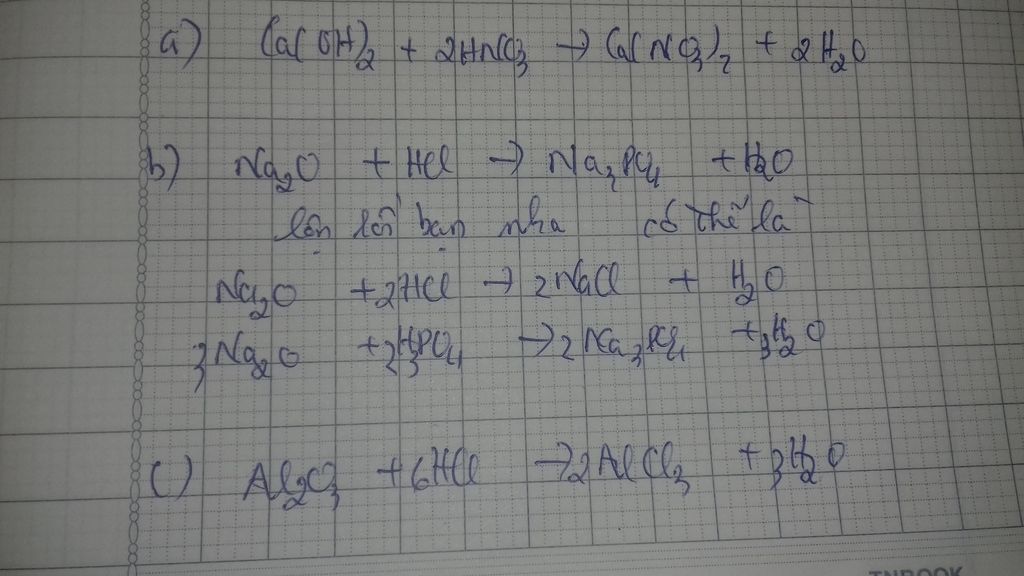 a) Ca(OH)₂ + 2HNO₃ → Ca(NO₃)₂ + 2H₂O
b) Na₂O + HCl → Na₃PO₄ + H₂O
lộn rồi bạn nha có thể là
Na₂O + 2HCl → 2NaCl + H₂O
3Na₂O + 2H₃PO₄ → 2Na₃PO₄ + 3H₂O
c) Al₂O₃ + 6HCl → 2AlCl₃ + 3H₂O